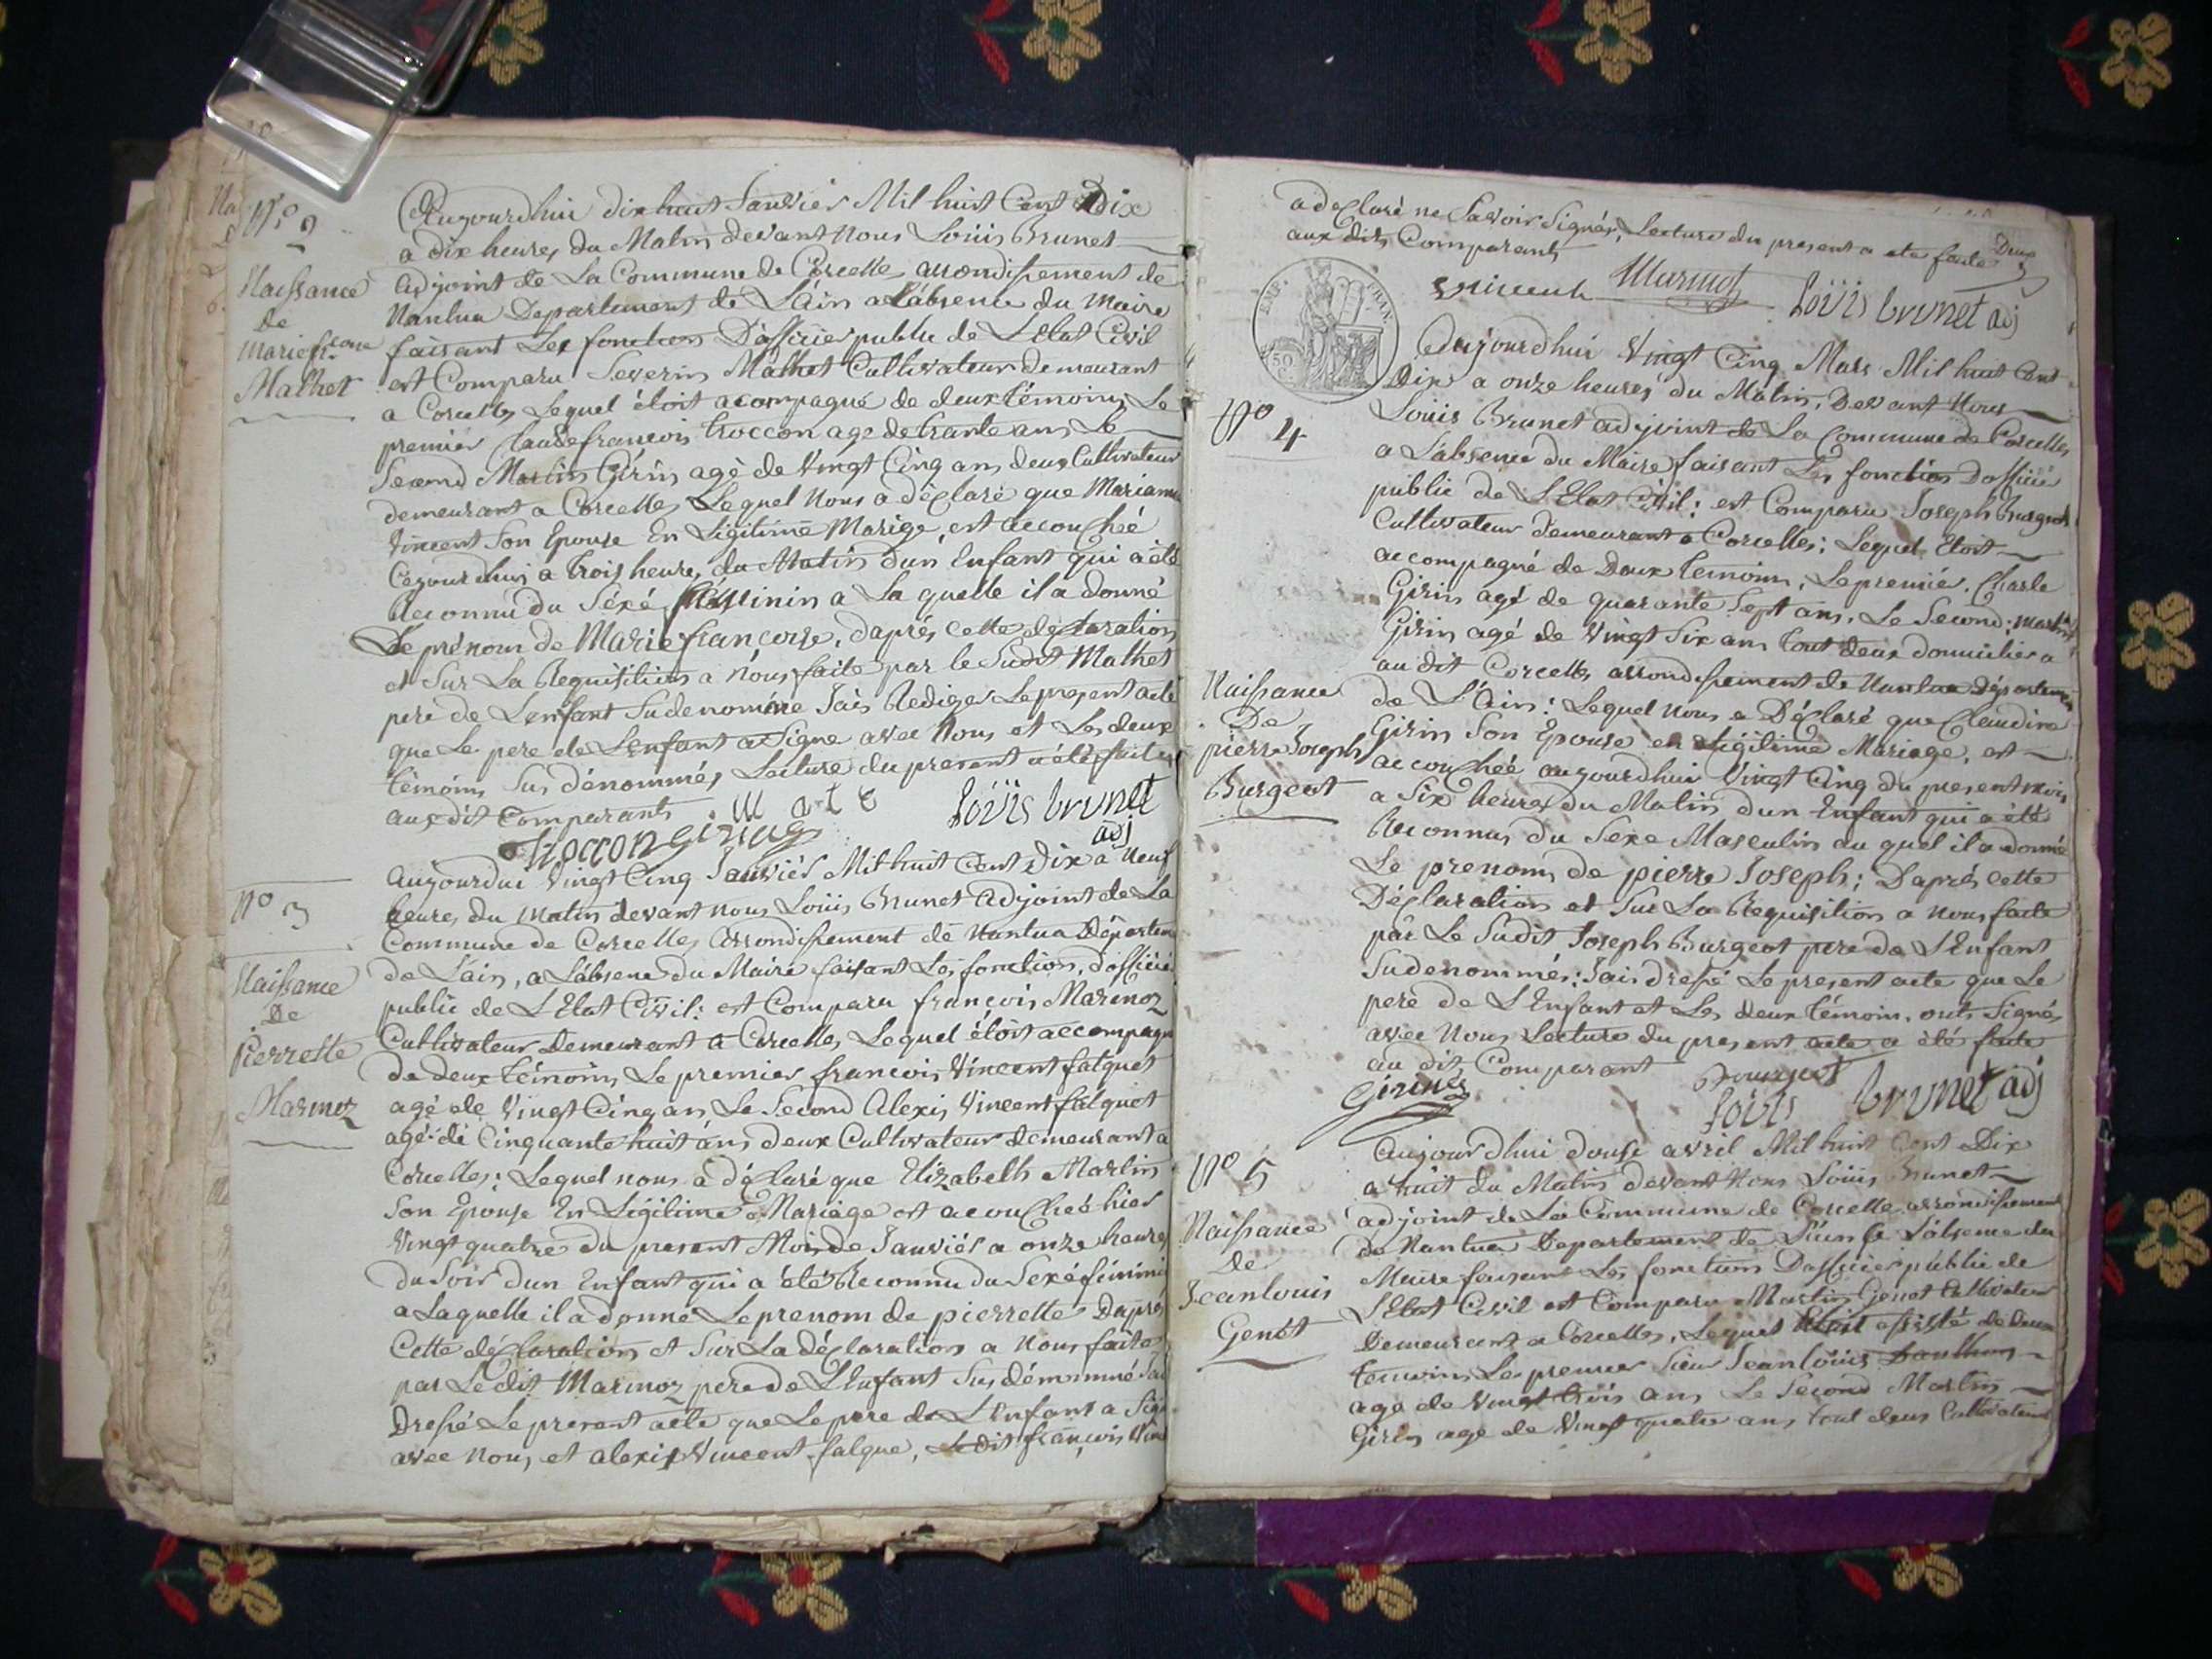 N.o 2
Naissance
de
Marie fr.coise
Mathet
Aujourdhui dix huit Janvier Mil huit Cent Dix
a dix heures du Matin devant Nous Loüis Brunet
adjoint de La Commune de Corcelle, arrondissement de
Nantua Departement de L'áin a Lábsence du Maire
faisant Les fonctions D'officier public de L'Etat Civil
est Comparu Severin Mathet Cultivateur demeurant
a Corcelles Lequel étoit acompagné de deux témoins Le
premier Claude francois troccon age de trante ans Le
Second Martin Girin agé de Vingt Cinq ans deux Cultivateur
demeurant a Corcelles Lequel Nous a déclaré que Marianne
Vincent Son Epouse En Ligitime Marige, est accouchéé
Cejourdhui a trois heures du Matin dun Enfant qui a été
Reconnu du Séxé féminin a La quelle il a donné
Le prénom de Marie françoise, daprés cette declaration
et Sur La Requisition a Nous faite par le Sudit Mathet
pere de Lenfant Sudenoméne Jais Rediger Le present acte
que Le pere de Lenfant a Signe avec Nous et Les deux
témoins Sus dénommés, Lecture du present a été fait
aux dit Comparants
troccon girin loüis brunet
adj
N.o 3
Naissance
De
Pierrette
Marmoz
Aujourdui Vingt Cinq Janviér Mil huit Cent Dix a Neuf
heures du Matin devant nous Loüis Brunet Adjoint de La
Commune de Corcelles Arrondissement de Nantua Départem
de L'ain, a Lábsence du Maire faisant Les fonction, d'officié
public de L'Etat Civil: est Comparu françois Marmoz
Cultivateur Demeurant a Corcelles Lequel étoit accompagn
de deux témoins Le premier francois Vincent falquet
agé de Vingt Cinq ans Le Second Alexis Vincent falquet
agé de Cinquante huit ans deux Cultivateur demeurant a
Corcelles: Lequel nous a déclaré que Elizabeth Martin
Son Epouse En Ligitime Mariage est acouchéé hier
Vingt quatre du present Mois de Janviér a onze heures
du Soir dun Enfant qui a été Reconnu du Sexé féminin
a Laquelle il a donné Le prenom de pierrette Daprés
Cette déclaration et Sur La déclaration a Nous faite
par Ledit Marmoz pere de L'Enfant Sus démommé
Dressé Le present acte que Le pere de L'Enfant a Sig
avec Nous et alexis Vincent falque, Ledit françois Vin
a declaré ne Savoir Signér, Lecture du present a ete faite
aux dits Comparents
Deux
vincent Marmoz loüis brunet adj
EMP. FRAN.
50
N.o 4
Naissance
De
pierre Joseph
Burgeot
Aujourdhui Vingt Cinq Mars Mil huit Cent
Dix a onze heures du Matin, Devant Nous
Loüis Brunet adjoint de La Commune de Corcelles
a Lábsence du Maire faisant Les fonction Dofficié
public de L'Etat Civil: est Comparu Joseph Burgeot
Cultivateur demeurant a Corcelles; Lequel Etoit
accompagné de Deux temoins, Le premié. Charle
Girin agé de quarante Sept ans, Le Second; Martin
Girin agé de Vingt Six ans tout deux domicilier a
au dit Corcelles arrondissement de Nantua Départeme
de L'Ain: Lequel nous a Déclaré que Claudine
Girin Son Epouse en Légitime Mariage, est
accouchéé aujourdhui Vingt Cinq du present mois
a Six heures du Matin dun Enfant qui a été
Reconnus du Sexe Masculin au quel il a donné
Le prenom de pierre Joseph; Daprés cette
Déclaration et Sur La Requisition a nous faite
par Le Sudit Joseph Burgeot pere de L'Enfant
Sudenommés: Jais dressé Le present acte que Le
pere de L'Enfant et Les deux témoin, onts Signés
avec Nous Lecture du present acte a été faite
au dit, Comparant
Girin Bourgeot
loüis brunet adj
N.o 5
Naissance
de
Jeanlouis
Genêt
Aujourdhui douse avril Mil huit Cent Dix
a huit du Matin devant Nous Loüis Brunet
adjoint de La Commune de Corcelle, arrondissement
de Nantua Departement de L'ain a Lábsence du
Maire faisant Les fonctions Dofficier public de
L'Etat Civil est Comparu Martin Genet Cultivateur
Demeurant a Corcelles, Lequel Etoit assisté de deux
temoins Le premier Sieur Jean loüis
age de Vingt trois ans Le Second Martin
Girin age de Vingt quatre ans tout deux Cultivateurs